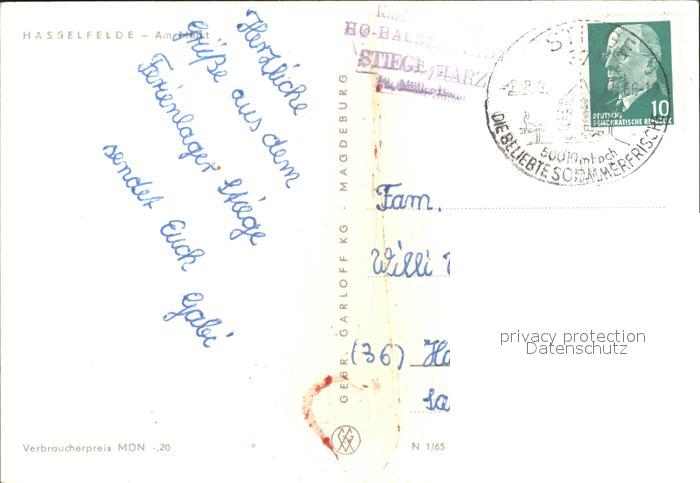 HASSELFELDE – Am Markt
Herzliche
Grüße aus dem
Ferienlager Stiege
sendet Euch Gabi
STIEGE/HARZ
500 m hoch
DIE BELIEBTE SOMMERFRISCHE
10
DEUTSCHE
DEMOKRATISCHE REPUBLIK
GEBR. GARLOFF KG · MAGDEBURG
Fam.
Willi
(36)
privacy protection
Datenschutz
Verbraucherpreis MDN -,20
N 1/65